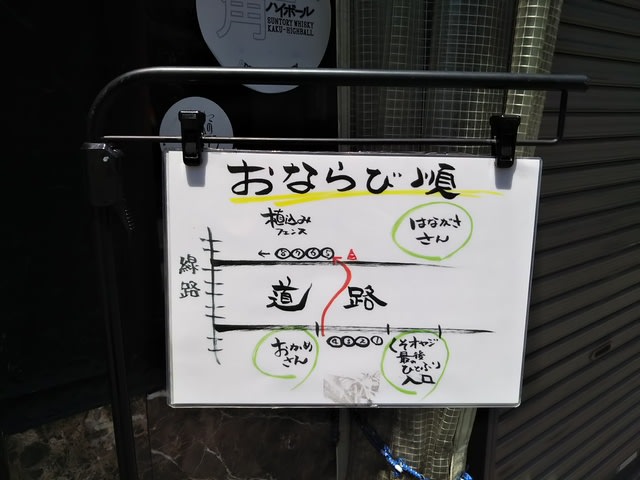 角
ハイボール
SUNTORY WHISKY
KAKU-HIGHBALL
おならび順
植込み
フェンス
はながさ
さん
←⑧⑦⑥⑤
線路
道路
④③②①
おかめ
さん
くそオヤジ
最後の
ひとふり
入口